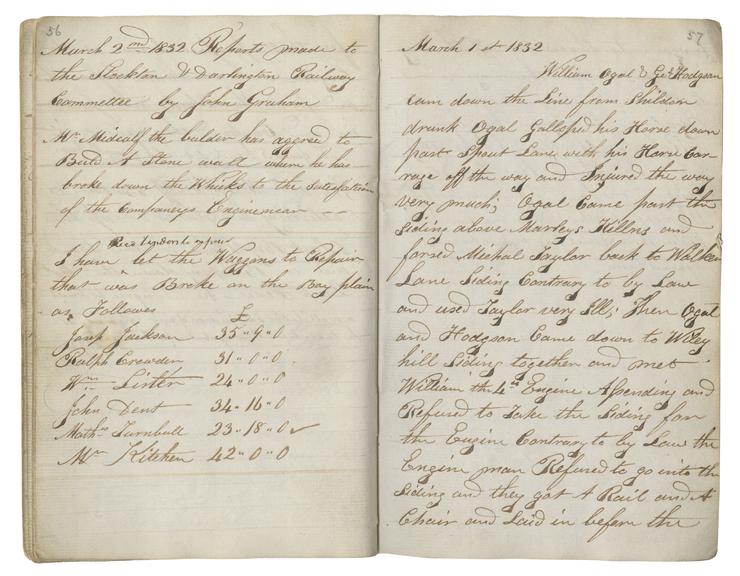 56
March 2nd 1832 Reports made to
the Stockton & Darlington Railway
Committee by John Graham
Mr Midcalf the bulder has agered to
Buld A Stone wall where he has
broke down the Whicks to the Satisfaction
of the Companeys Enginemear
I have let the Waggans to Repair
that was Broke on the Bay plain
as Followes £
Josep Jackson 35 " 9 " 0
Ralph Crowden 31 " 0 " 0
Wm Lister 24 " 0 " 0
John Dent 34 " 16 " 0
Mathw Turnbull 23 " 18 " 0 ✓
Mr Kitchen 42 " 0 " 0
57
March 1st 1832
William Ogal & Ge Hodgson
Cam down the Line from Shildon
drunk Ogal Galloped his Horse down
past Spout Lane with his Horse Car-
rage off the way and Injured the way
very much; Ogal Came past the
Siding above Marleys Killns and
forsed Michal Taylor back to Walker
Lane Siding Contrary to by Law
and used Taylor very Ill; Then Ogal
and Hodgson Came down to Wiley
hill Siding together and met
William the 4th Engine Assending and
Refused to Take the Siding for
the Engine Contrary to by Law the
Engine man Refused to go into the
Siding and they got A Rail and A
Chair and Laid in before the